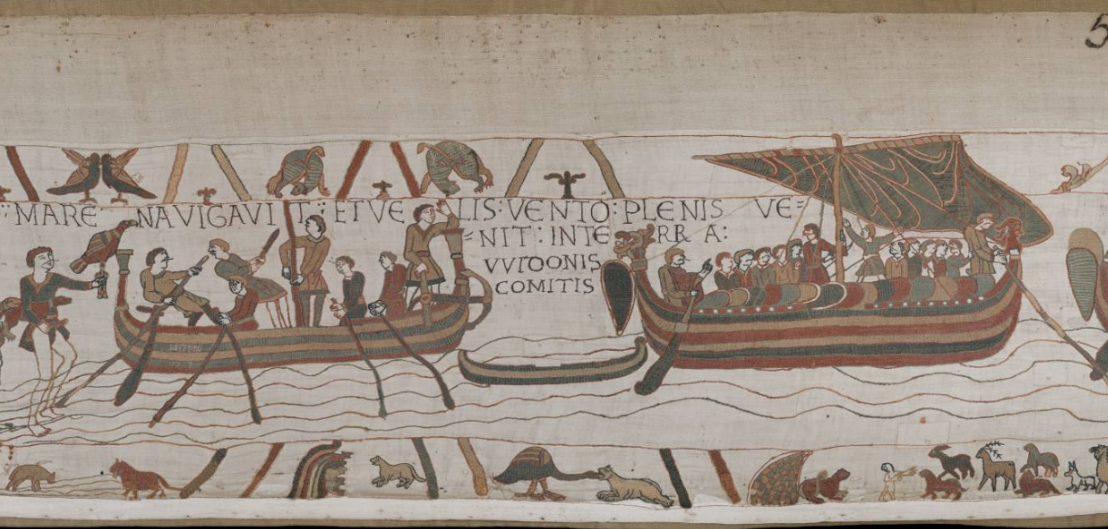 5
: MARE NAVIGAVIT : ET VELIS : VENTO : PLENIS VE=
=NIT : IN TERRA :
VVIDONIS
COMITIS